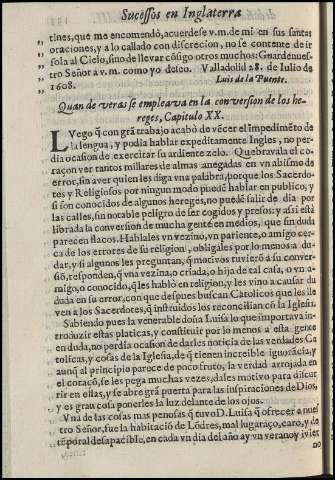 Sucessos en Inglaterra
,, tines, que me encomendò, acuerdese v.m. de mi en sus santas
,, oraciones, y a lo callado con discrecion, no se contente de ir
,, sola al Cielo, sino de llevar cõsigo otros muchos: Guarde nues-
,, tro Señor a v. m. como yo deseo. Valladolid 28. de Iulio de
,, 1608. Luis de la Puente.
Quan de veras se empleava en la conversion de los he-
reges, Capitulo XX.
LVego q̃ con grã trabajo acabò de vẽcer el impedimẽto de
la lengua, y podia hablar expeditamente Ingles, no per-
dia ocasion de exercitar su ardiente zelo. Quebravala el co-
raçon ver tantos millares de almas anegadas en vn abismo de
error, sin aver quien les diga vna palabra, porque los Sacerdo-
tes y Religiosos por ningun modo puedẽ hablar en publico, y
si son conocidos de algunos hereges, no puedẽ salir de dia por
las calles, sin notable peligro de ser cogidos y presos: y assi està
librada la conversion de mucha gente en medios, que sin duda
parecen flacos. Hablales vn vezino, vn pariente, o amigo cer-
ca de los errores de su religion, obligales por lo menos a du-
dar, y si algunos les preguntan, q̃ motivos tuvierõ a su conver-
siõ, responden, q̃ vna vezina, o criada, o hija de tal casa, o vn a-
migo, o conocido, q̃ les hablò en religion, y les vino a causar du
duda en su error, con que despues buscan Catolicos que les lle
ven a los Sacerdotes, q̃ instruidos los reconcilian cõ la Iglesia.
Sabiendo pues la venerable doña Luisa lo que importava in-
troduzir estas platicas, y constituir por lo menos a esta gente
en duda, no perdia ocasion de darles noticia de las verdades Ca
tolicas, y cosas de la Iglesia, de q̃ tienen increible ignorãcia, y
aunq̃ al principio parece de poco fruto, la verdad arrojada en
el coraçõ, se les pega muchas vezes, dales motivo para discur
rir en ellas, y se abre grã puerta para las inspiraciones de Dios,
y es gran cosa ponerles la luz delante de los ojos.
Vna de las cosas mas penosas q̃ tuvo D. Luisa q̃ ofrecer a nues
tro Señor, fue la habitaciõ de Lõdres, mal lugar aço, caro, y de
tẽporal desapacible, en cada vn dia del año ay vn verano y ivier
no